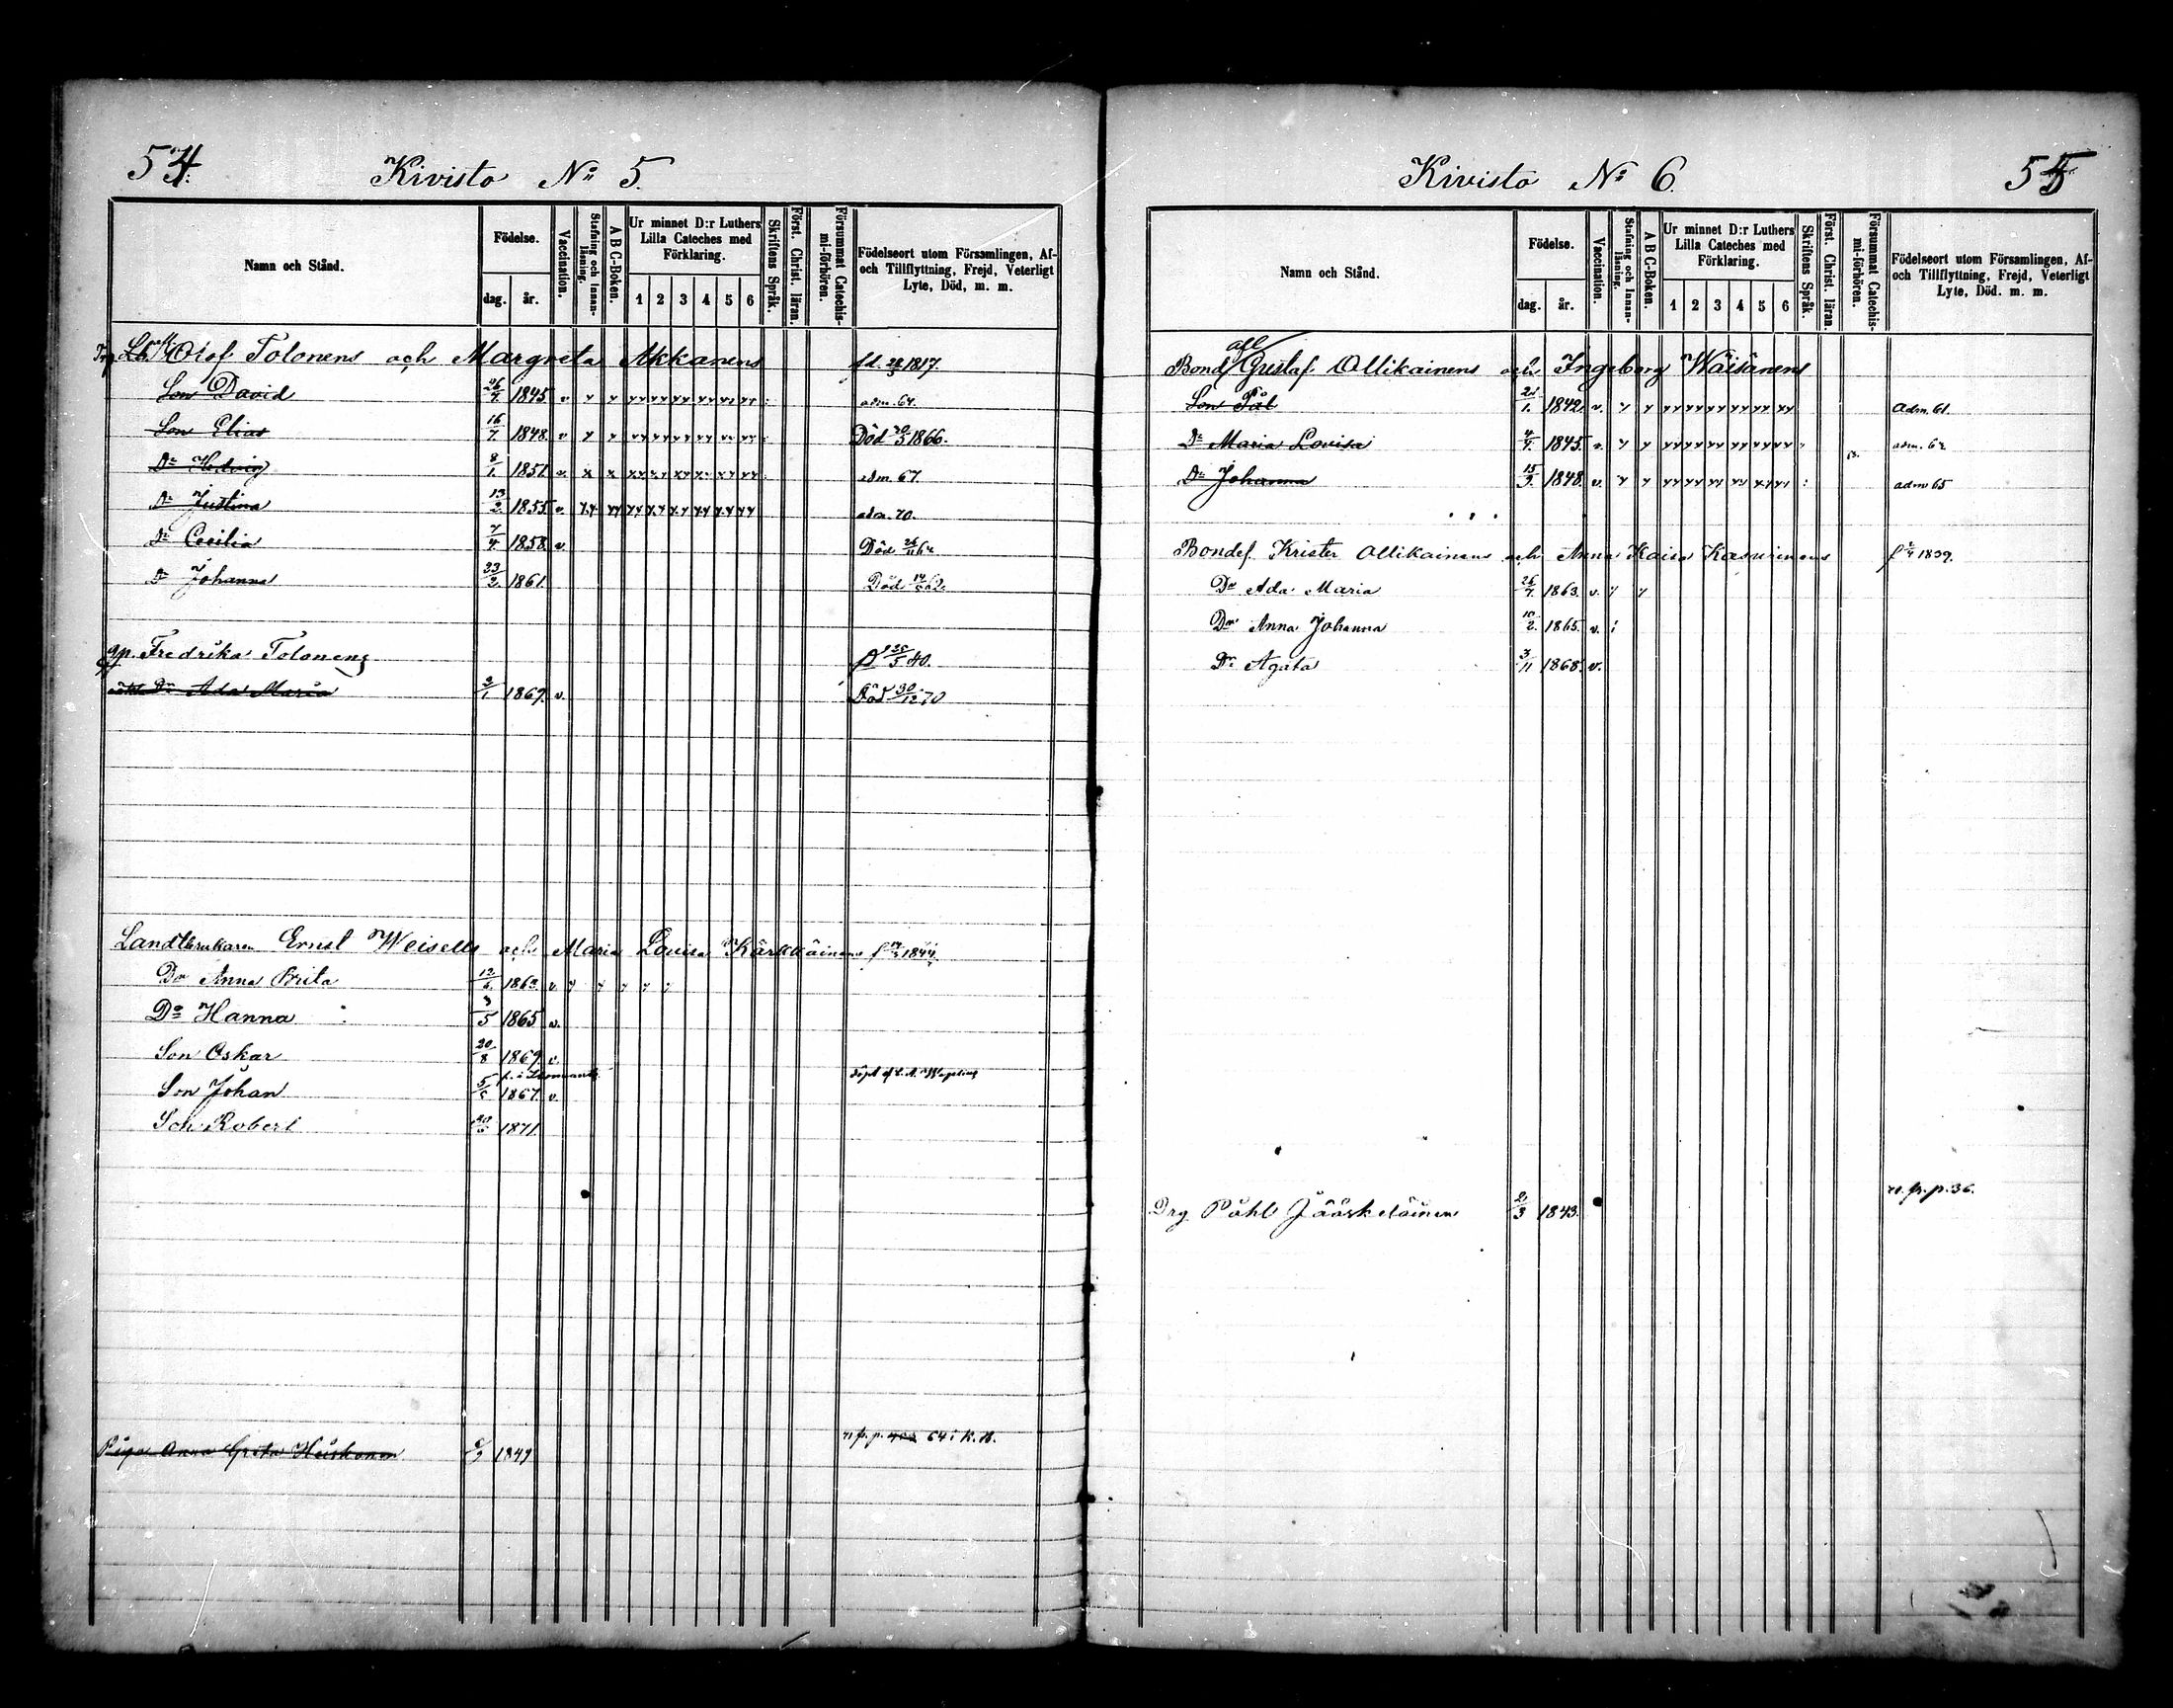 54.
Kivisto No 5.
Namn och Stånd.
Födelse.
dag.
år.
Vaccination.
Stafning och Innan-läsning.
A B C-Boken.
Ur minnet D:r Luthers
Lilla Cateches med
Förklaring.
1 2 3 4 5 6
Skriftens Språk.
Först. Christ. läran.
Försummat Catechis-mi-förhören.
Födelseort utom Församlingen, Af-
och Tillflyttning, Frejd, Veterligt
Lyte, Död, m. m.
Olof Tolonens och Margreta Akkanens fd. 1817.
Son David 26/7 1845 v adm. 64.
Son Elias 16/7 1848 v Död 1866.
Dr Hedvig 8/1 1851 v adm. 67.
Dr Justina 13/2 1855 v adm. 70.
Dr Cecilia 7/4 1858 v. Död
Dr Johanna 23/2 1861. Död
Fredrika Tolonens 40.
Dr Ada Maria 3/1 1869. v. Död 30/12 70
Landtbrukaren Ernst Weisells och Maria Lovisa Kärkkäinens f 1844.
Dr Anna Brita 12/6 186 v
Do Hanna 3/5 1865 v.
Son Oskar 20/8 1869 v.
Son Johan 1867. v.
Son Robert 1871.
Piga Anna Greta 1849 fr. p. 64 i K. B.
Kivisto No 6.
55
Namn och Stånd.
Födelse.
dag.
år.
Vaccination.
Stafning och Innan-läsning.
A B C-Boken.
Ur minnet D:r Luthers
Lilla Cateches med
Förklaring.
1 2 3 4 5 6
Skriftens Språk.
Först. Christ. läran.
Försummat Catechis-mi-förhören.
Födelseort utom Församlingen, Af-
och Tillflyttning, Frejd, Veterligt
Lyte, Död. m. m.
afl
Bond. Gustaf Ollikainens och Ingeborg Wäisänens
Son Pål 21/1. 1842. v. adm. 61.
Dr Maria Lovisa 1845. v. adm. 62
Dr Johanna 15/3 1848. v. adm 65
Bondes. Krister Ollikainens och Anna Kaisa Kasurinens f 1839.
Dr Ada Maria 26/7 1863. v.
Dr Anna Johanna 10/2. 1865. v.
Dr Agata 3/11 1868. v.
Drg Påhl Jääskeläinen 2/3 1843. fr. p. 36.